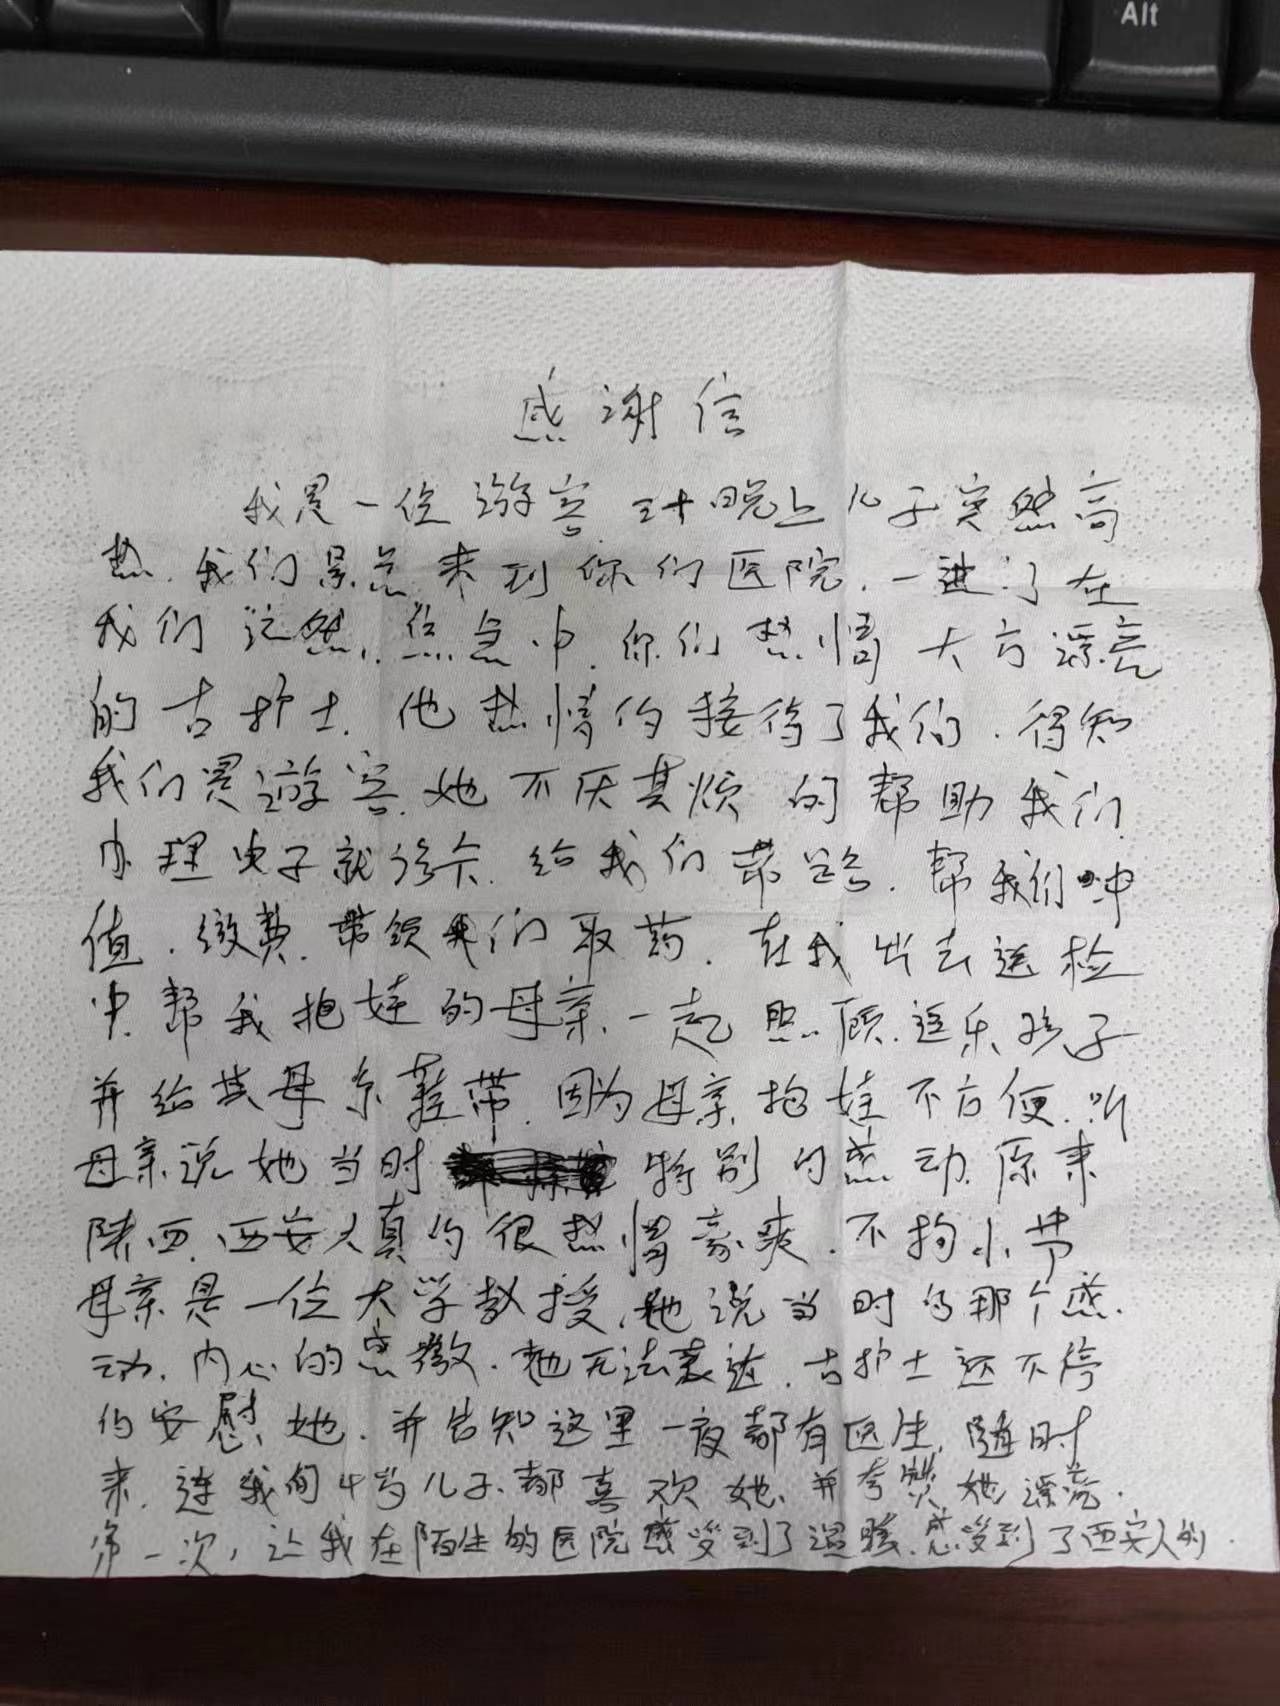 Alt
感谢信
我是一位游客 三十晚上儿子突然高
热.我们紧急来到你们医院.一进门在
我们茫然,焦急中.你们热情大方漂亮
的古护士.他热情的接待了我们.得知
我们是游客.她不厌其烦的帮助我们
办理电子就诊卡.给我们带路.帮我们冲
值.缴费.带领我们取药.在我出去送检
中.帮我抱娃的母亲.一起照顾.逗乐孩子
并给其母系鞋带.因为母亲抱娃不方便.听
母亲说她当时 特别的感动.原来
陕西.西安人真的很热情豪爽.不拘小节
母亲是一位大学教授.她说当时的那个感.
动.内心的感激.她无法表达.古护士还不停
的安慰她.并告知这里一夜都有医生,随时
来.连我们4岁儿子.都喜欢她、并夸赞她漂亮.
第一次,让我在陌生的医院感受到了温暖.感受到了西安人的.